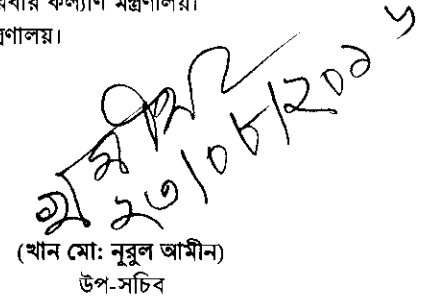 কল্যাণ মন্ত্রণালয়।
২৩/০৮/২০১৬
(খান মো: নূরুল আমীন)
উপ-সচিব